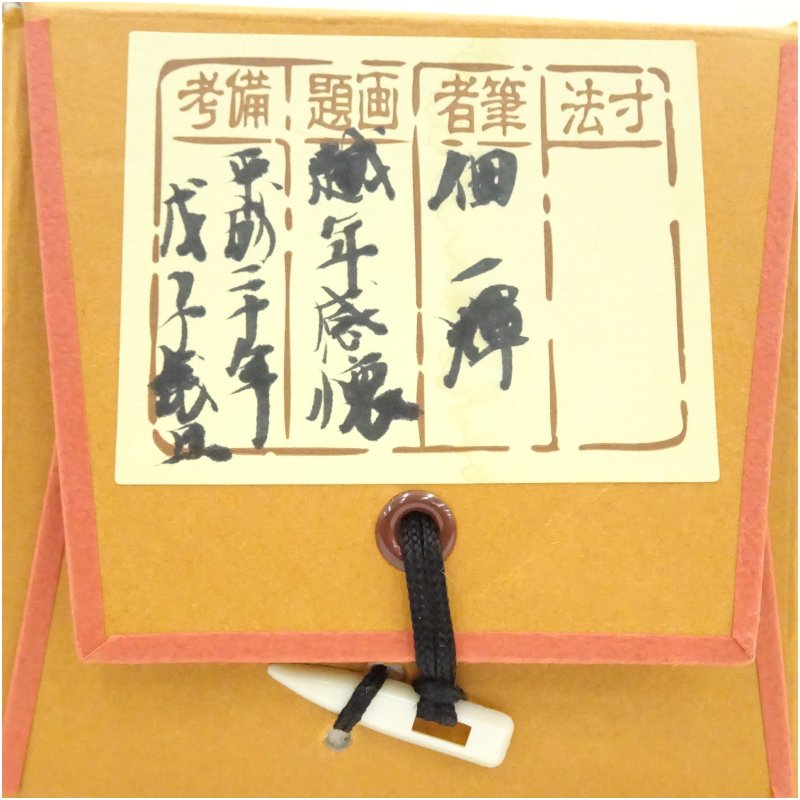 寸法
筆者
佃一輝
画題
越年感懐
備考
平成二十年
戊子歳旦